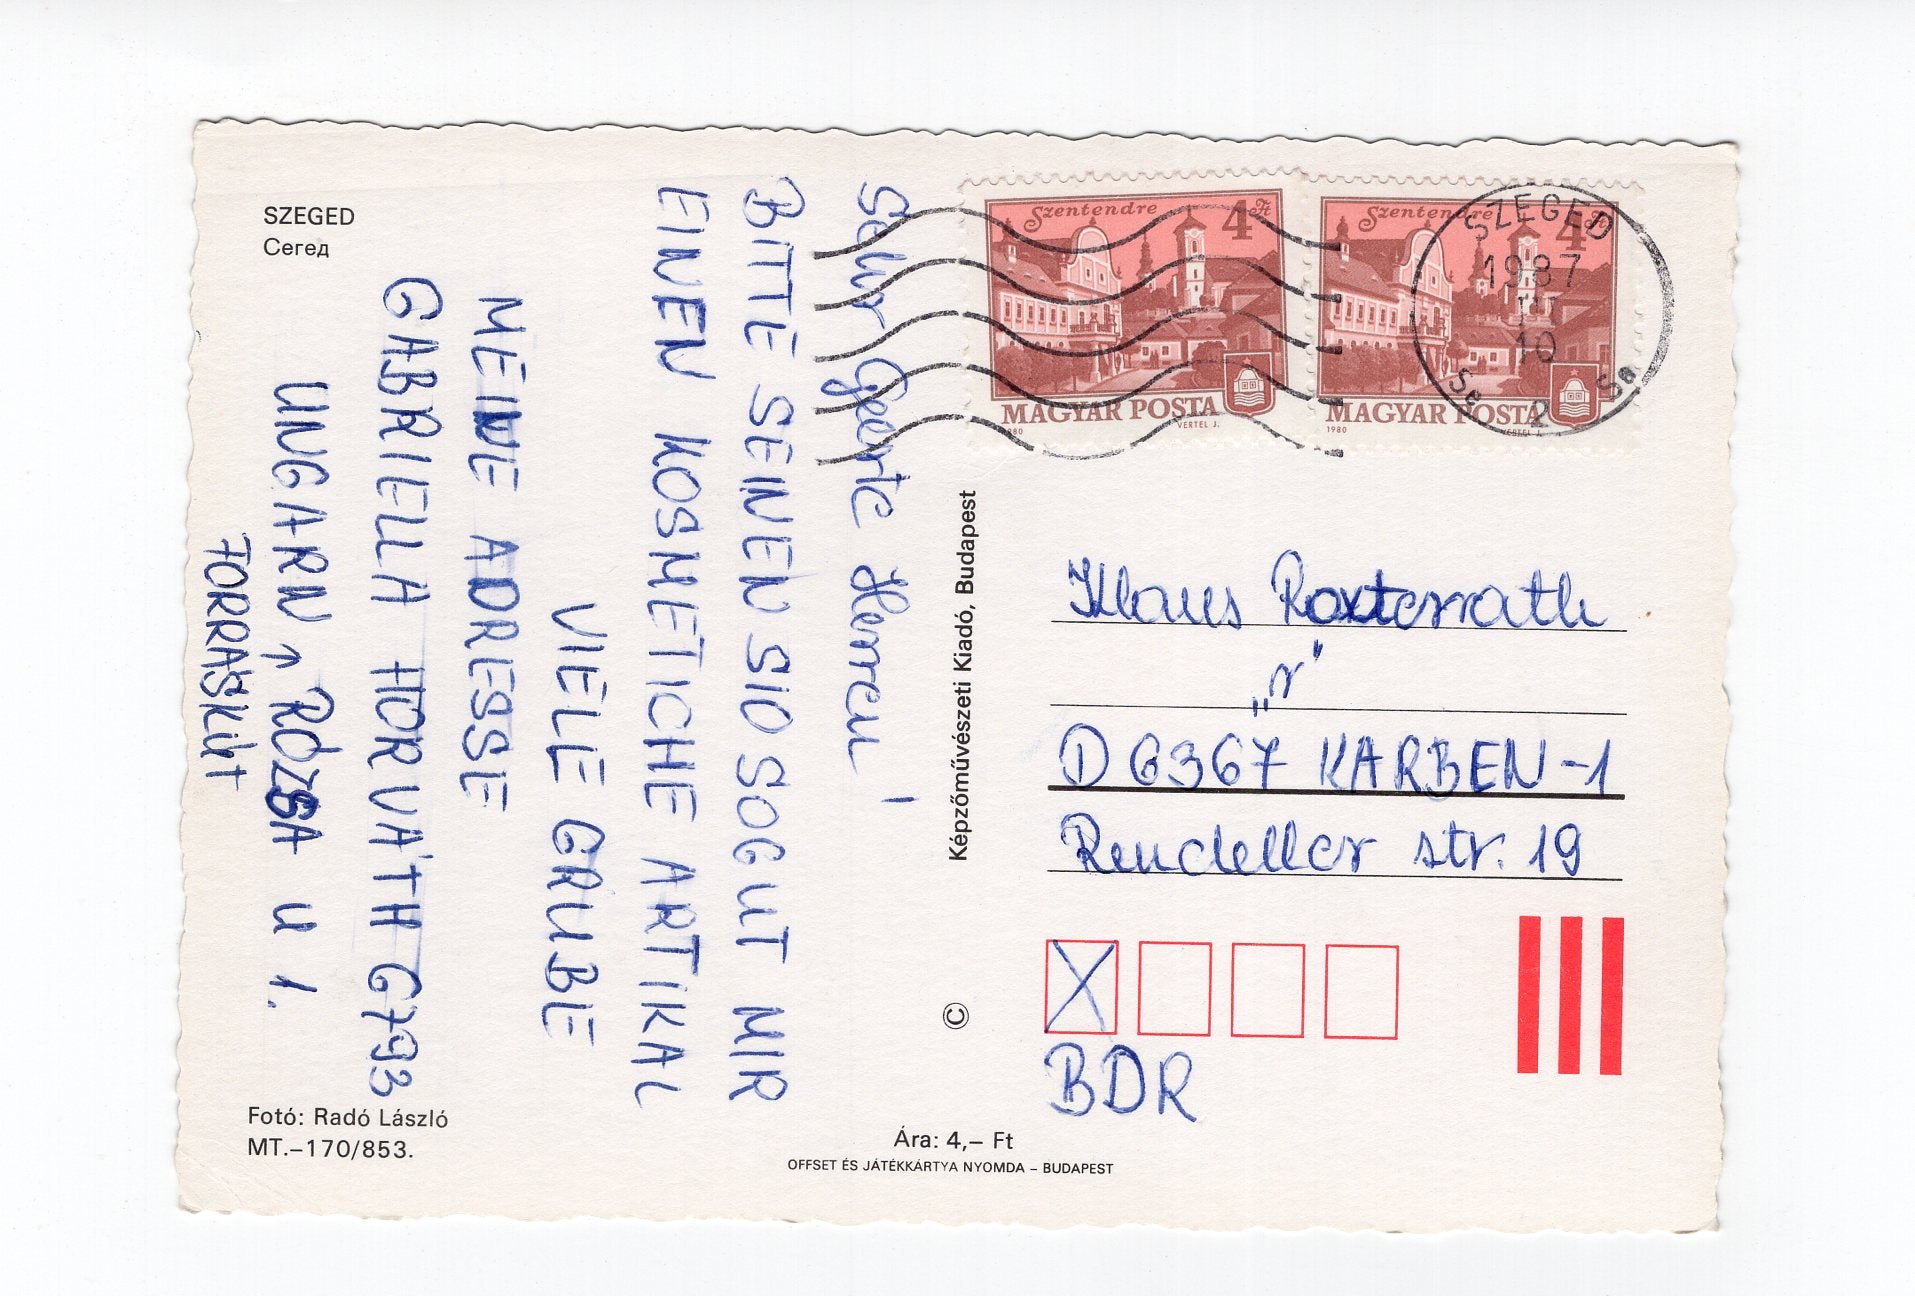 SZEGED
Сегед
Sehr Geerte Herren!
BITTE SEINEN SIO SOGUT MIR
EINEN KOSMETICHE ARTIKAL
VIELE GRUBE
MEINE ADRESSE
GABRIELLA HORVÁTH 6793
UNGARN ↑ RÓZSA U 1.
FORRÁSKÚT
Fotó: Radó László
MT.–170/853.
Képzőművészeti Kiadó, Budapest
©
Ára: 4,– Ft
OFFSET ÉS JÁTÉKKÁRTYA NYOMDA – BUDAPEST
Szentendre 4 Ft
MAGYAR POSTA
1980 VERTEL J.
Szentendre 4 Ft
MAGYAR POSTA
1980 VERTEL J.
SZEGED
1987
10
2
Klaus
"r"
D 6367 KARBEN-1
Rendeller str. 19
BDR